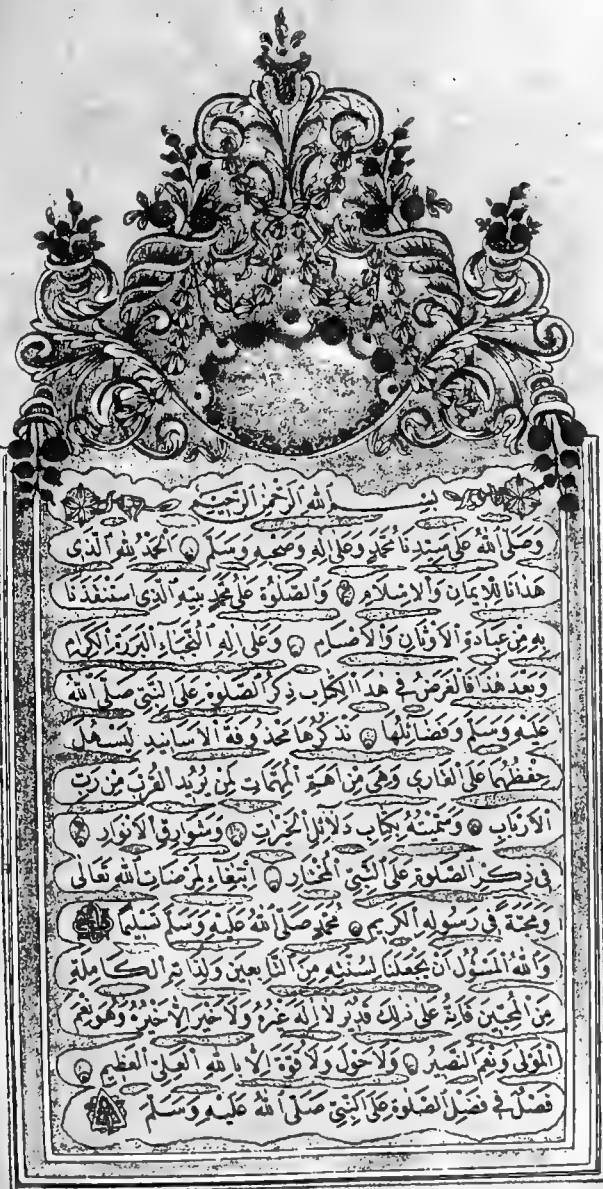 بِسْمِ اللهِ الرَّحْمٰنِ الرَّحِيمِ
وَصَلَّى اللهُ عَلَى سَيِّدِنَا مُحَمَّدٍ وَعَلَى اٰلِهِ وَصَحْبِهِ وَسَلَّمَ اَلْحَمْدُ لِلّٰهِ الَّذِى
هَدَانَا لِلْاِيمَانِ وَالْاِسْلَامِ وَالصَّلٰوةُ عَلَى مُحَمَّدٍ نَبِيِّهِ الَّذِى اسْتَنْقَذَنَا
بِهِ مِنْ عِبَادَةِ الْاَوْثَانِ وَالْاَصْنَامِ وَعَلَى اٰلِهِ النُّجَبَاءِ الْبَرَرَةِ الْكِرَامِ
وَبَعْدَ هٰذَا فَالْغَرَضُ فِى هٰذَا الْكِتَابِ ذِكْرُ الصَّلٰوةِ عَلَى النَّبِىِّ صَلَّى اللهُ
عَلَيْهِ وَسَلَّمَ وَفَضَائِلُهَا نَذْكُرُهَا مَحْذُوفَةَ الْاَسَانِيدِ لِيَسْهُلَ
حِفْظُهَا عَلَى الْقَارِى وَهِىَ مِنْ اَهَمِّ الْمُهِمَّاتِ لِمَنْ يُرِيدُ الْقُرْبَ مِنْ رَبِّ
الْاَرْبَابِ وَسَمَّيْتُهُ بِكِتَابِ دَلَائِلِ الْخَيْرَاتِ وَشَوَارِقِ الْاَنْوَارِ
فِى ذِكْرِ الصَّلٰوةِ عَلَى النَّبِىِّ الْمُخْتَارِ اِبْتِغَاءً لِمَرْضَاتِ اللهِ تَعَالَى
وَمَحَبَّةً فِى رَسُولِهِ الْكَرِيمِ مُحَمَّدٍ صَلَّى اللهُ عَلَيْهِ وَسَلَّمَ تَسْلِيمًا
وَاللهُ الْمَسْؤُلُ اَنْ يَجْعَلَنَا لِسُنَّتِهِ مِنَ التَّابِعِينَ وَلِذَاتِهِ الْكَامِلَةِ
مِنَ الْمُحِبِّينَ فَاِنَّهُ عَلَى ذٰلِكَ قَدِيرٌ لَا اِلٰهَ غَيْرُهُ وَلَا خَيْرَ اِلَّا خَيْرُهُ وَهُوَ نِعْمَ
الْمَوْلٰى وَنِعْمَ النَّصِيرُ وَلَا حَوْلَ وَلَا قُوَّةَ اِلَّا بِاللهِ الْعَلِىِّ الْعَظِيمِ
فَصْلٌ فِى فَضْلِ الصَّلٰوةِ عَلَى النَّبِىِّ صَلَّى اللهُ عَلَيْهِ وَسَلَّمَ